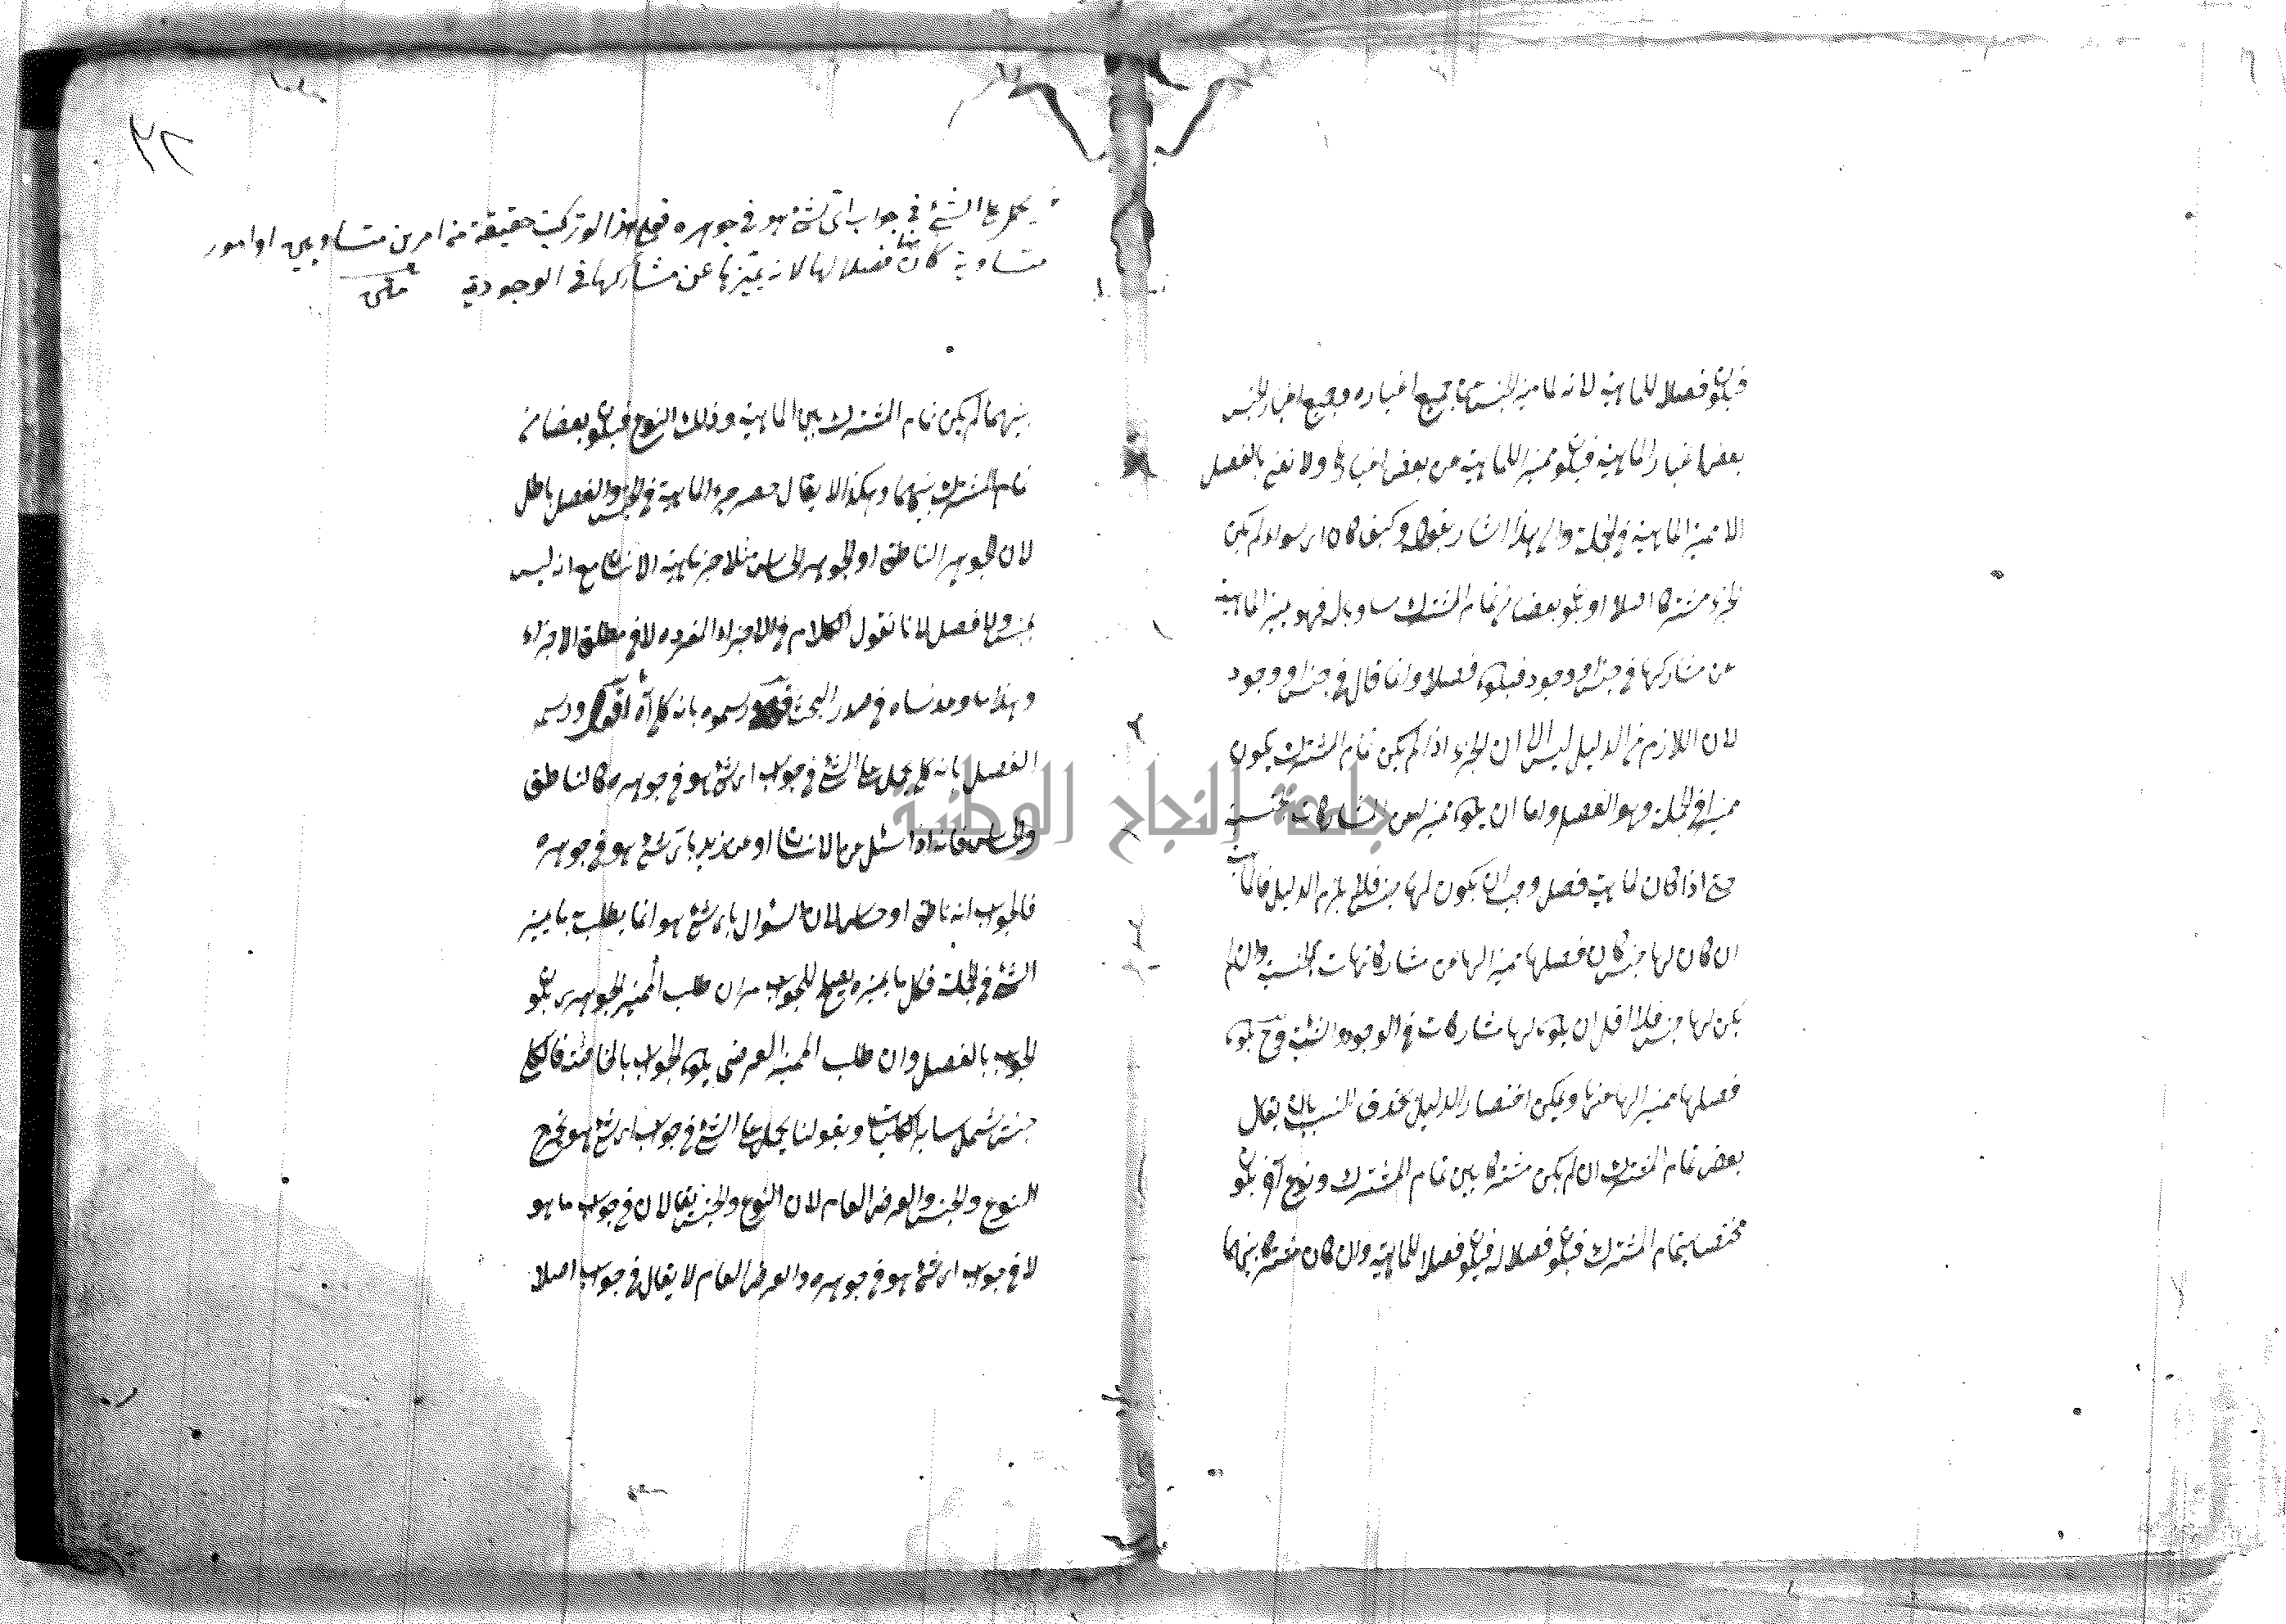 فيكون فصلا للماهية لانه لما ميز الجنس عن جميع اغياره وجميع اغيار الجنس
بعض اغيار الماهية فيكون مميز اللماهية من بعض اغيارها ولا نعني بالفصل
الا مميز الماهية في الجملة والى هذا اشار بقوله وكيف كان اى سواء لم يكن
الجزء مشتركا اصلا او يكون بعضا من تمام المشترك مساويا له فهو يميز الماهية
عن مشاركها في جنس او وجود فيكون فصلا وانما قال في جنس او وجود
لان اللازم من الدليل ليس الا ان الجزء اذا لم يكن تمام المشترك يكون
مميزا في الجملة وهو الفصل واما ان يكون مميزا عن المشاركات الجنسية
حتى اذا كان لماهية فصل وجب ان يكون لها جنس فلا يلزم من الدليل فالماهية
ان كان لها جنس كان فصلها مميزا لها عن مشاركاتها الجنسية وان لم
يكن لها جنس فلا اقل ان يكون لها مشاركات في الوجود والشيئية وح يكون
فصلها مميزا لها عنها ويمكن اختصار الدليل بحذف النسب بان يقال
بعض تمام المشترك ان لم يكن مشتركا بين تمام المشترك ونوع آخر يكون
مختصا بتمام المشترك فيكون فصلا له فيكون فصلا للماهية وان كان مشتركا بينهما
يحمل على الشئ في جواب اى شئ هو في جوهره فعلى هذا لو تركبت حقيقة من امرين متساويين او امور
متساوية كان فصلا لها لانه يميزها عن مشاركها في الوجود
متن
بينهما لم يكن تمام المشترك بين الماهية وذلك النوع فيكون بعضا من
تمام المشترك بينهما وهكذا لا يقال حصر جزء الماهية في الجنس والفصل باطل
لان الجوهر الناطق او الجوهر الحساس مثلا جزء ماهية الانسان مع انه ليس
بجنس ولا فصل لانا نقول الكلام في الاجزاء المفرده لا في مطلق الاجزاء
وهذا ما وعدناه في صدر البحث قوله ورسموه بانه كلى آه اقول ورسم
الفصل بانه كلى يحمل على الشئ في جواب اى شئ هو في جوهره كالناطق
والحساس فانه اذا سئل عن الانسان او عن زيد باى شئ هو في جوهره
فالجواب انه ناطق او حساس لان السؤال باى شئ هو انما يطلب به ما يميز
الشئ في الجملة فكل ما يميزه يصلح للجواب ثم ان طلب المميز الجوهرى يكون
الجواب بالفصل وان طلب المميز العرضى يكون الجواب بالخاصة فالكلى
جنس يشمل سائر الكليات وبقولنا يحمل على الشئ في جواب اى شئ هو يخرج
النوع والجنس والعرض العام لان النوع والجنس يقالان في جواب ما هو
لا في جواب اى شئ هو في جوهره والعرض العام لا يقال في جواب اصلا
جامعة النجاح الوطنية